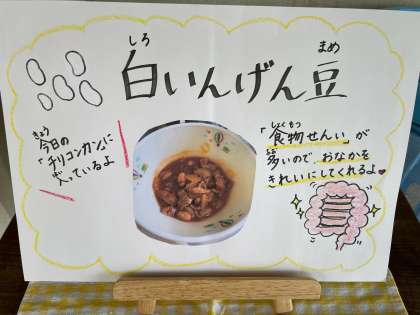 しろ まめ
白いんげん豆
きょう
今日の
「チリコンカン」に
はい
入っているよ
しょくもつ
「食物せんい」が
おお
多いので、おなかを
きれいにしてくれるよ♥